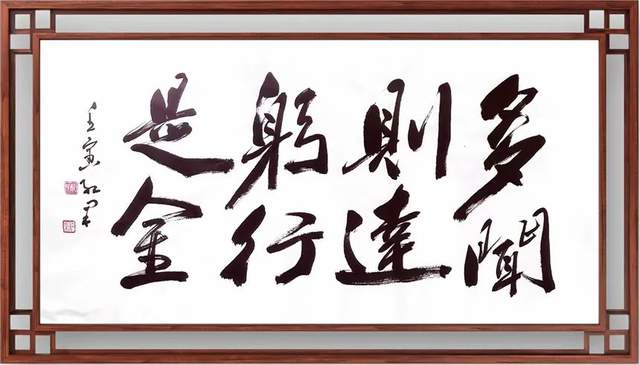 多聞
則達
躬行
是金
壬寅